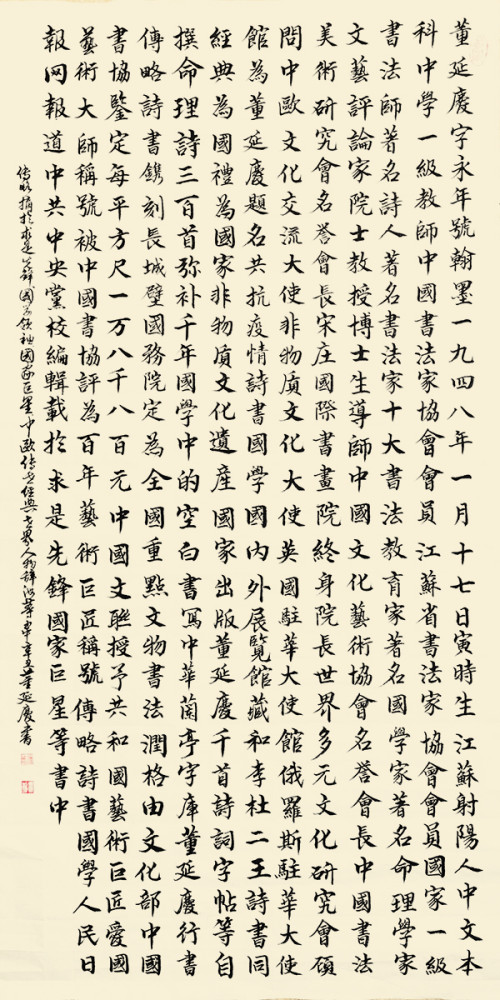 董延慶字永年號翰墨一九四八年一月十七日寅時生江蘇射陽人中文本
科中學一級教師中國書法家協會會員江蘇省書法家協會會員國家一級
書法師著名詩人著名書法家十大書法教育家著名國學家著名命理學家
文藝評論家院士教授博士生導師中國文化藝術協會名譽會長中國書法
美術研究會名譽會長宋庄國際書畫院終身院長世界多元文化研究會碩
問中歐文化交流大使非物质文化大使英國駐華大使館俄羅斯駐華大使
館為董延慶題名共抗疫情詩書國學國内外展覽館藏和李杜二王詩書同
經典為國禮為國家非物质文化遺産國家出版董延慶千首詩詞字帖等自
撰命理詩三百首弥补千年國學中的空白書寫中華蘭亭字庫董延慶行書
傳略詩書鐫刻長城壁國務院定為全國重點文物書法潤格由文化部中國
書協鑒定每平方尺一万八千八百元中國文聯授予共和國藝術巨匠愛國
藝術大師稱號被中國書協評為百年藝術巨匠稱號傳略詩書國學人民日
報网報道中共中央黨校編輯載於求是先鋒國家巨星等書中
傳略摘於求是先鋒國家領袖國家巨星中歐傳世經典世界人物辭海等董延慶書